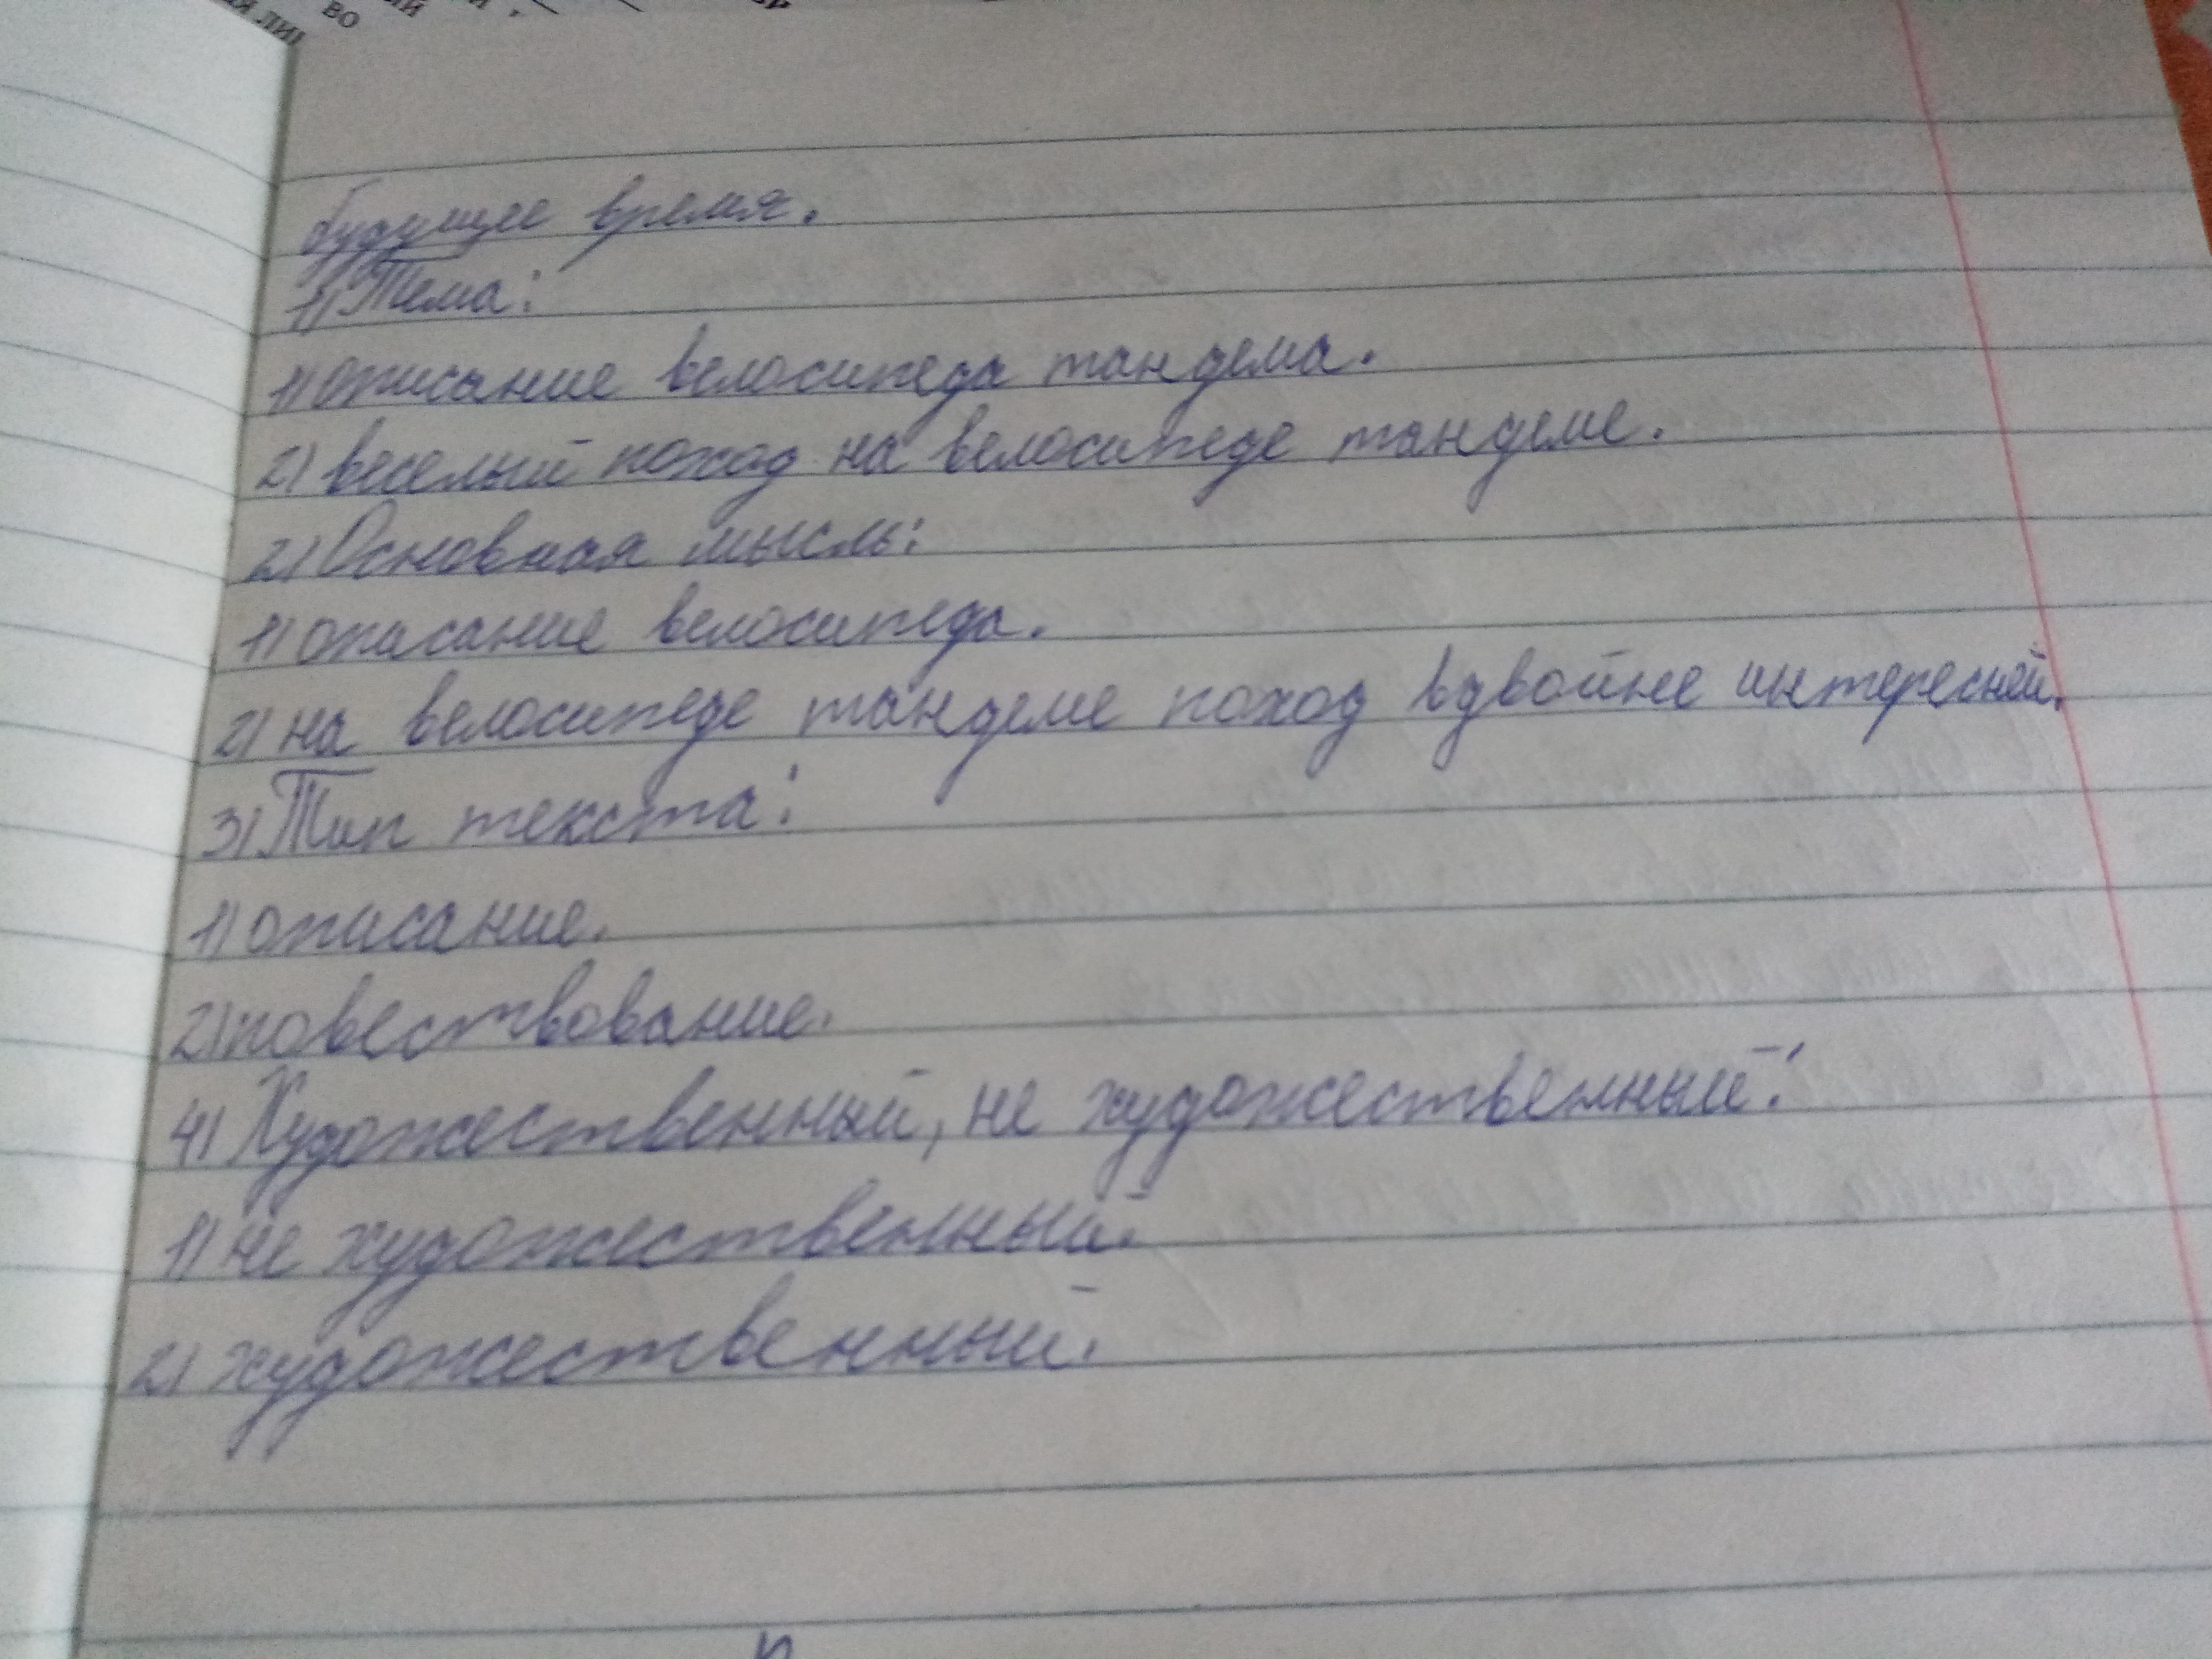 во
будущее время.
1) Тема:
1) описание велосипеда тандема.
2) веселый поход на велосипеде тандеме.
2) Основная мысль:
1) описание велосипеда.
2) на велосипеде тандеме поход вдвойне интересней.
3) Тип текста:
1) описание.
2) повествование.
4) Художественный, не художественный:
1) не художественный.
2) художественный.